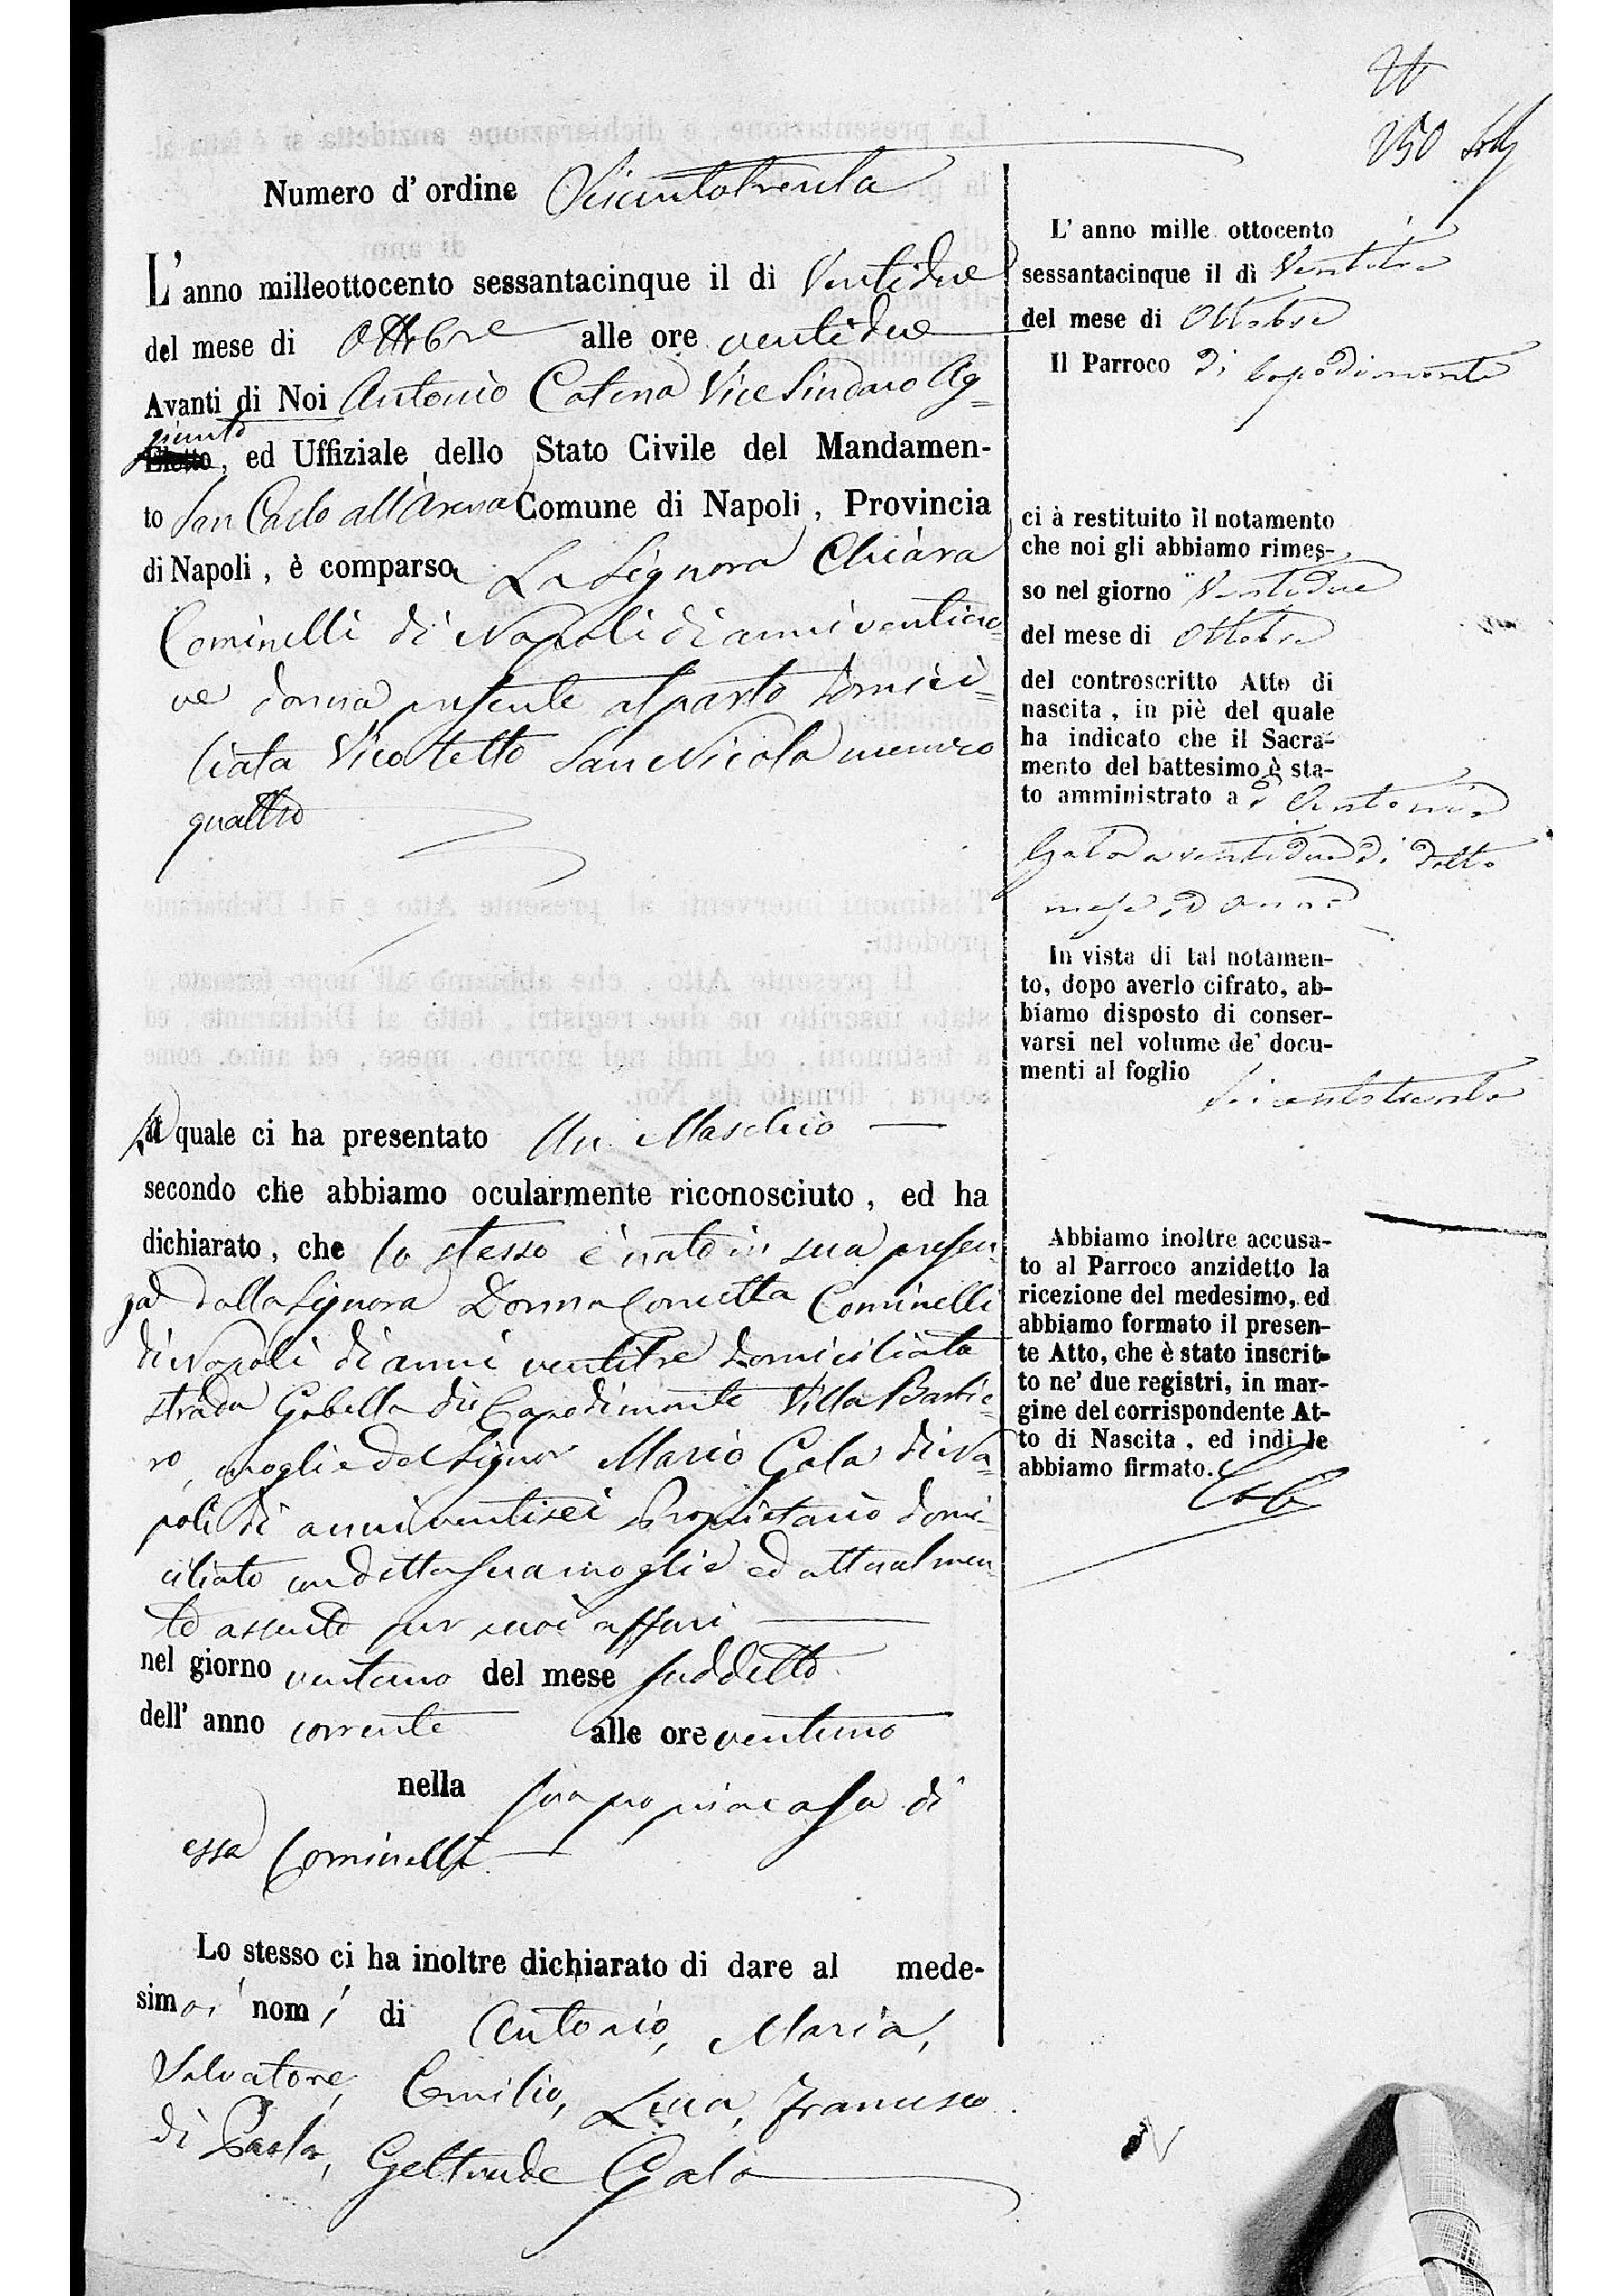 250
Numero d' ordine Seicentotrenta
L' anno milleottocento sessantacinque il di Ventidue
del mese di Ottobre alle ore ventidue
Avanti di Noi Antonio Catena Vice Sindaco Ag=
giunto
Eletto, ed Uffiziale dello Stato Civile del Mandamen-
to San Carlo all'Arena Comune di Napoli, Provincia
di Napoli, è comparsa La Signora Chiara
Cominelli di Napoli di anni ventino=
ve donna presente al parto domici=
liata Vico tetto San Nicola numero
quattro
La quale ci ha presentato Un Maschio
secondo che abbiamo ocularmente riconosciuto, ed ha
dichiarato, che lo stesso è nato in sua presen=
za dalla Signora Donna Concetta Cominelli
di Napoli di anni ventitre domiciliata
strada Gabella di Capodimonte Villa
ro, moglie del Signor Mario Gala di Na=
poli di anni ventisei Proprietario domi=
ciliato con detta sua moglie ed attualmen=
te assente per suoi affari
nel giorno ventuno del mese suddetto
dell' anno corrente alle ore ventuno
nella sua propria casa di
essa Cominelli
Lo stesso ci ha inoltre dichiarato di dare al mede-
simo i nomi di Antonio, Maria,
Salvatore, Emilio, Luca, Francesco
di Paola, Geltrude Gala
L' anno mille ottocento
sessantacinque il dì Ventitre
del mese di Ottobre
Il Parroco di Capodimonte
ci à restituito il notamento
che noi gli abbiamo rimes-
so nel giorno Ventidue
del mese di Ottobre
del controscritto Atto di
nascita, in piè del quale
ha indicato che il Sacra-
mento del battesimo è sta-
to amministrato a Antonio
Gala a ventidue di detto
mese ed anno
In vista di tal notamen-
to, dopo averlo cifrato, ab-
biamo disposto di conser-
varsi nel volume de' docu-
menti al foglio
Seicentotrenta
Abbiamo inoltre accusa-
to al Parroco anzidetto la
ricezione del medesimo, ed
abbiamo formato il presen-
te Atto, che è stato inscrit-
to ne' due registri, in mar-
gine del corrispondente At-
to di Nascita, ed indi le
abbiamo firmato.